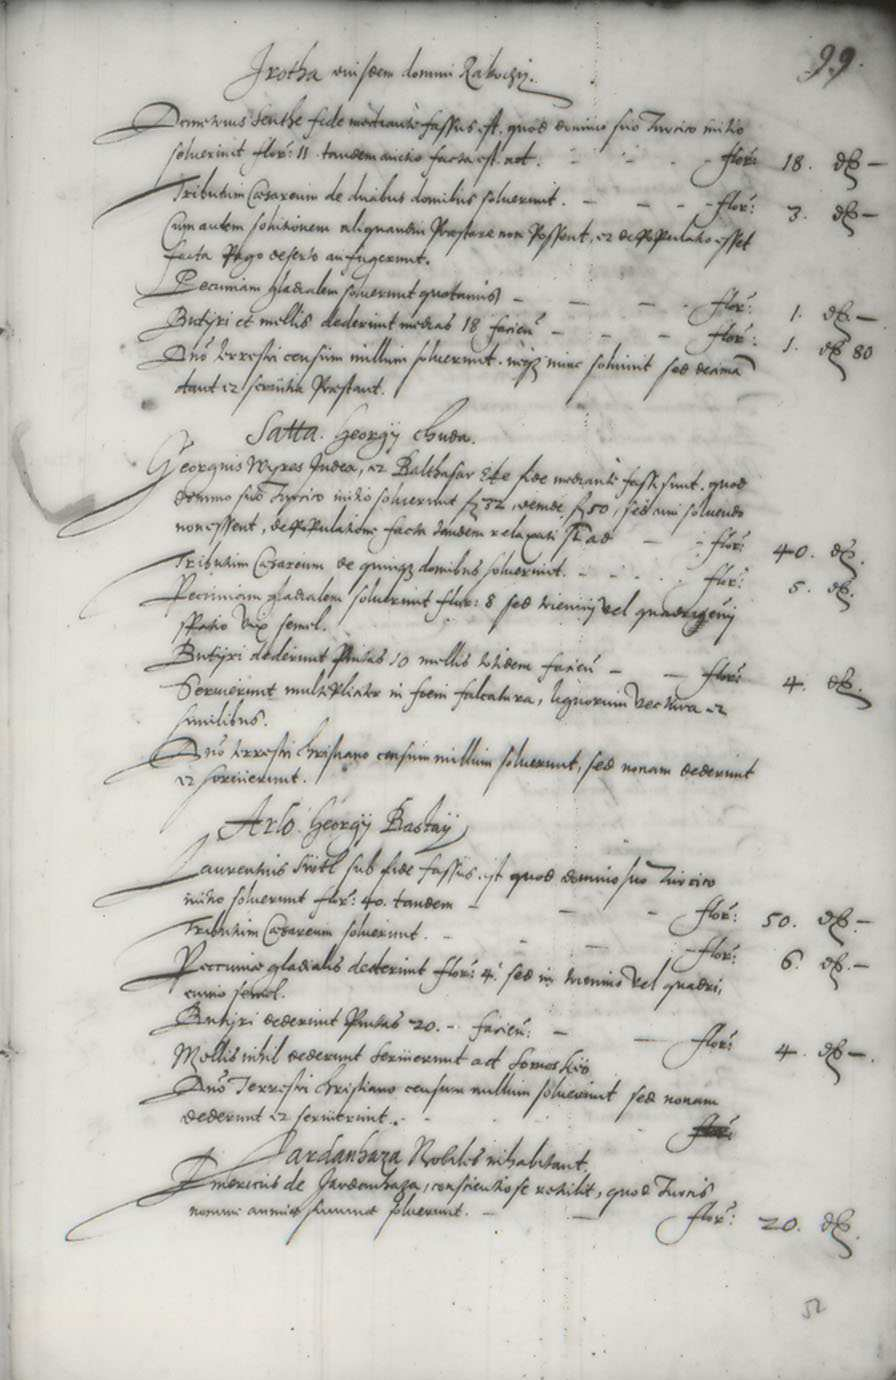 99.
Irotha eiusdem domini Rakoczy.
Demetrius Senthe fide mediante fassus est. quod domino suo Turcico initio
soluerint flor: 11. tandem auctio facta est ad. - - - - flor: 18. d -
Tributum Cæsareum de duabus domibus soluerunt. - - - flor: 3. d -
Cum autem solutionem aliquandiu præstare non possent, et depopulatio esset
facta pago deserto aufugerunt.
Pecuniam gladialem soluerunt quotannis - - - flor: 1. d -
Butyri et mellis dederunt medias 18 faciunt - - - flor: 1. d 80
Dno terrestri censum nullum soluerunt. neque nunc soluunt sed decimam
dant et seruitia præstant.
Satta. Georgÿ
Georgius Judex, et Balthasar fide mediante fassi sunt. quod
domino suo Turcico initio soluerunt f 32, deinde f 50, sed cum soluendo
non essent, depopulatione facta tandem relaxati sunt ad - - flor: 40. d.
Tributum Cæsareum de quinque domibus soluerunt. - - - flor: 5. d.
Pecuniam gladialem soluerunt flor: 8 sed triennÿ vel quadriennÿ
spatio vix semel.
Butyri dederunt pintas 10 mellis totidem faciunt - - flor: 4. d.
Seruierunt multipliciter in foeni falcatura, lignorum vectura et
similibus.
Dno terrestri christiano censum nullum soluerunt, sed nonam dederunt
et seruierunt.
Arlo. Georgÿ Bastaÿ
Laurentius sub fide fassus est quod domino suo Turcico
initio soluerunt flor: 40. tandem - - - flor: 50. d -
Tributum Cæsareum soluerunt. - - - flor: 6. d -
Pecuniæ gladialis dederunt flor: 4. sed in triennio vel quadri,
ennio semel.
Butyri dederunt pintas 20. - faciunt: - - flor: 4. d -.
Mellis nihil dederunt seruierunt ad
Dno Terrestri christiano censum nullum soluerunt sed nonam
dederunt et seruierunt.
Jardanhaza Nobiles inhabitant.
Emericus de Jardanhaza, conscientiose retulit, quod Turcis
nomine annuæ summæ soluerunt. - - flor: 20. d.
52